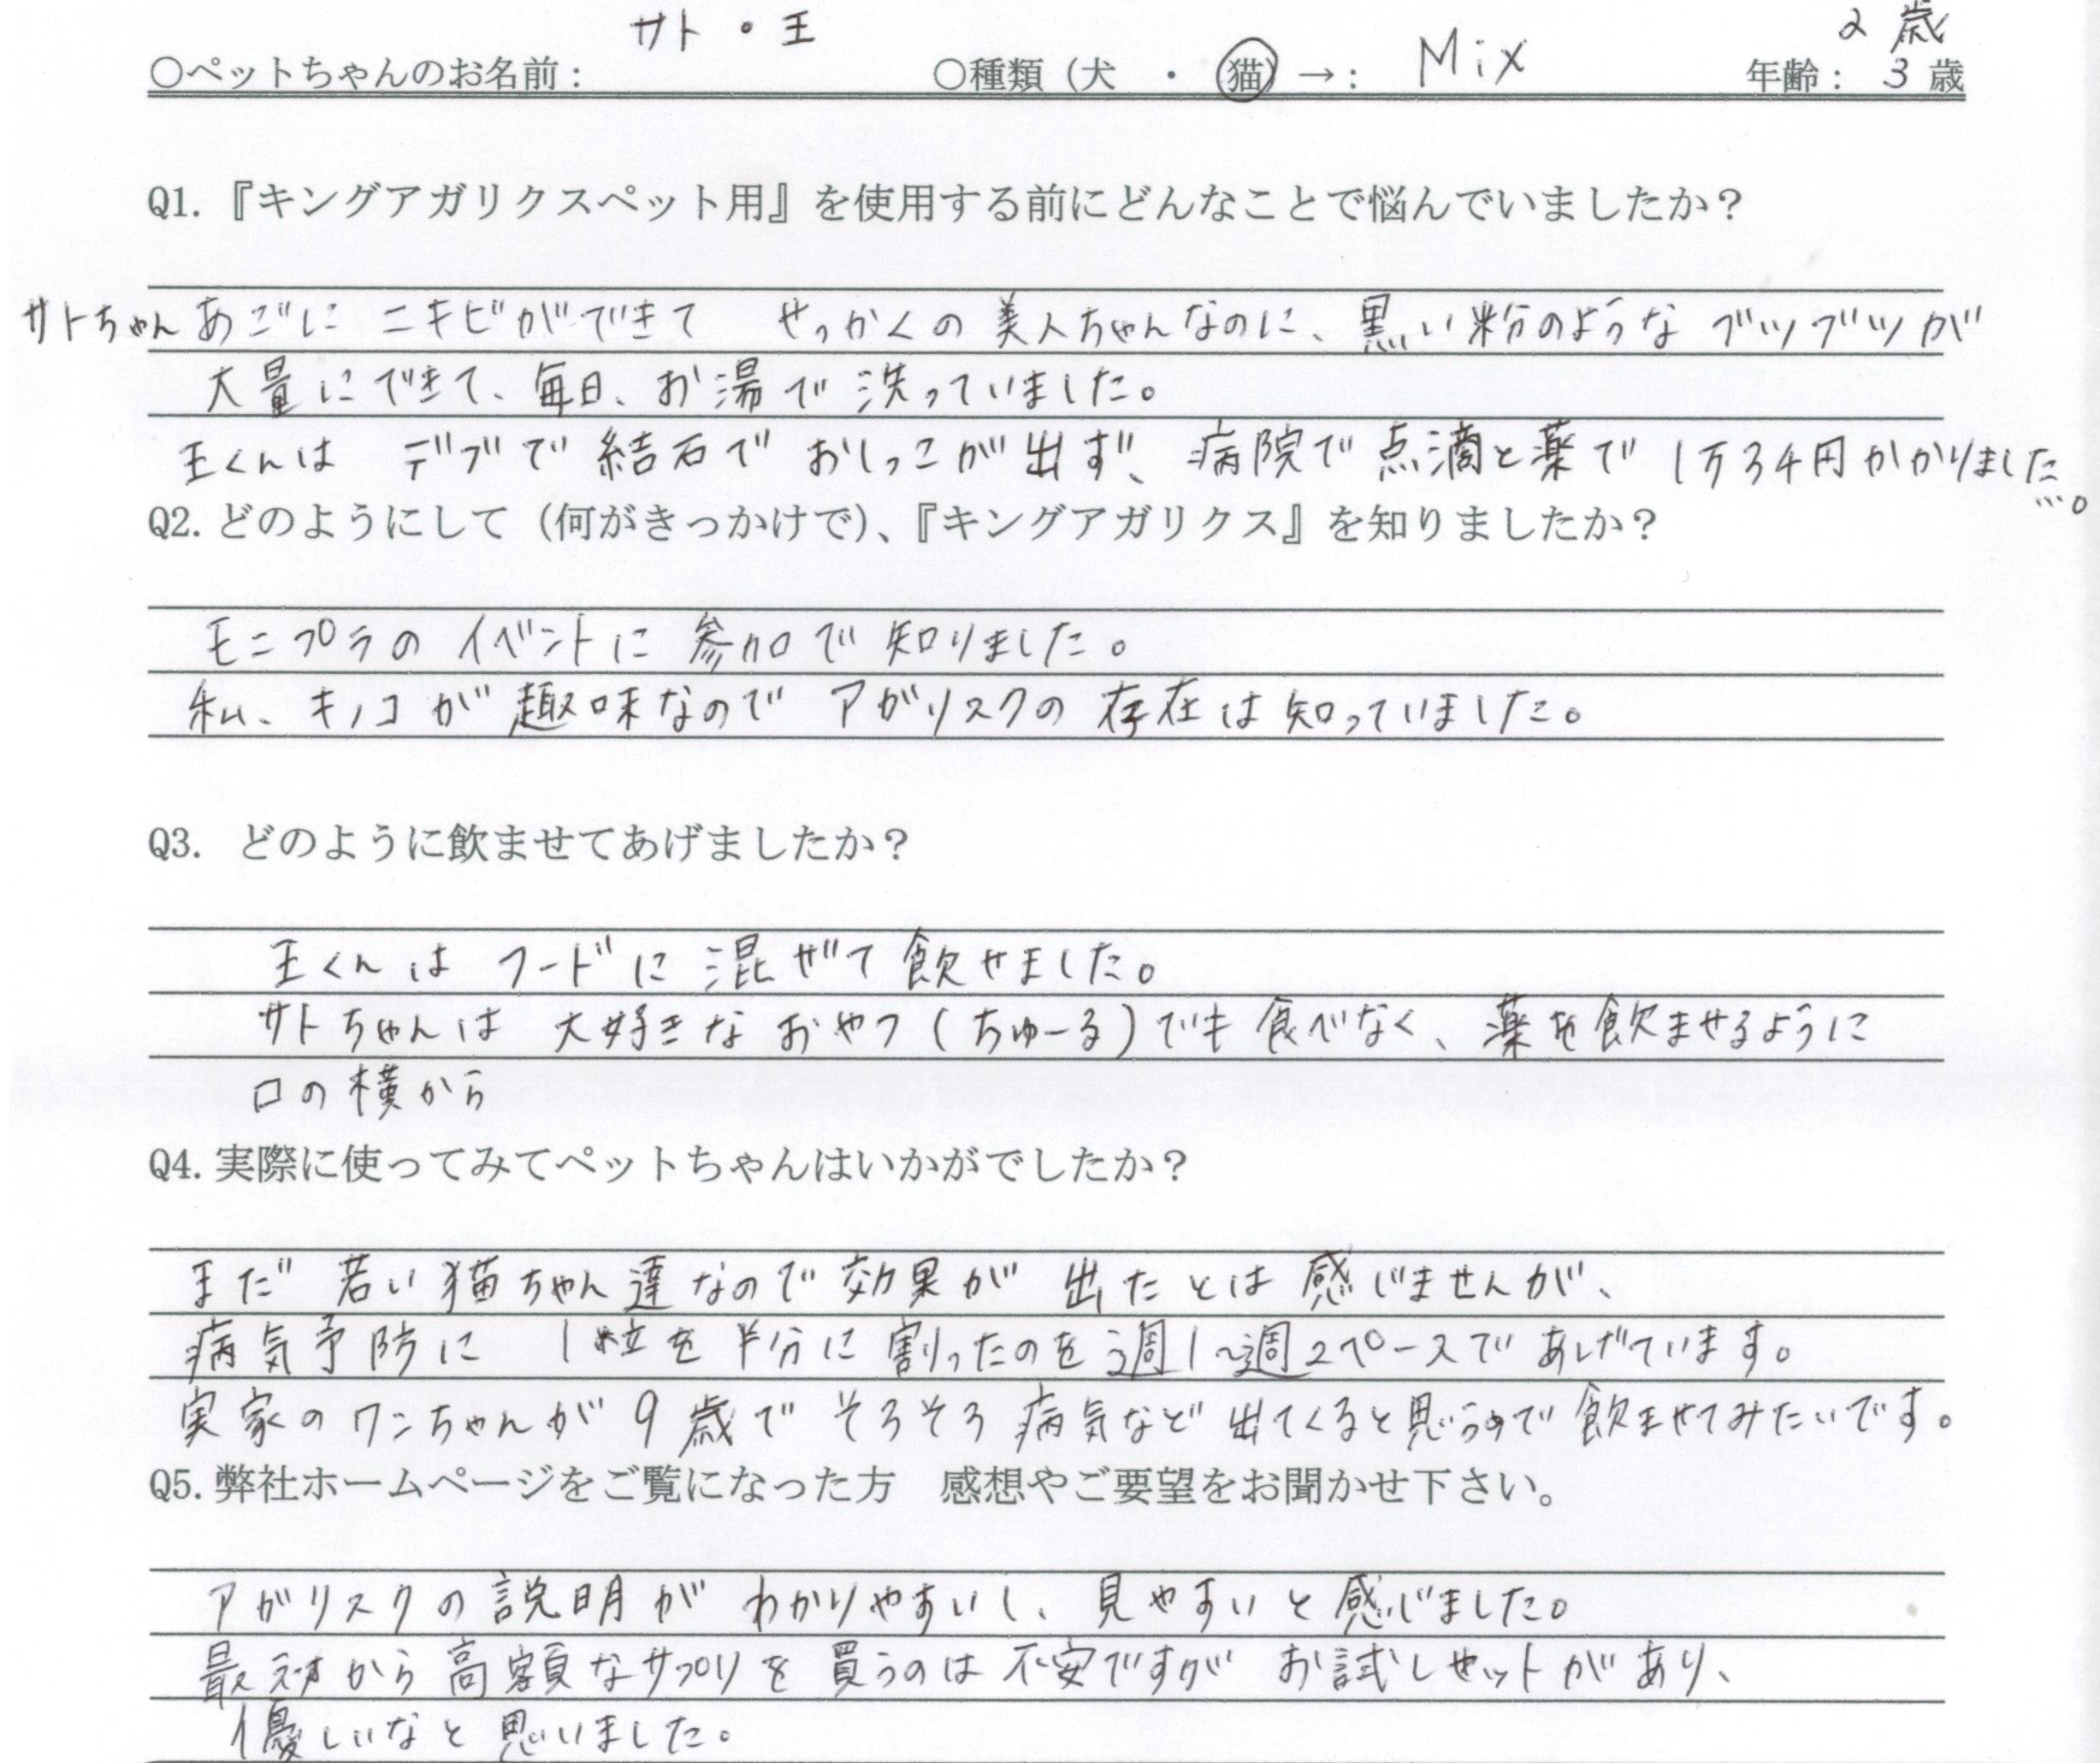 サト・王 2歳
○ペットちゃんのお名前： ○種類（犬 ・ 猫）→： Mix 年齢： 3 歳
Q1.『キングアガリクスペット用』を使用する前にどんなことで悩んでいましたか？
サトちゃん あごに ニキビができて せっかくの 美人ちゃんなのに、黒い粉のような ブツブツが
大量にできて、毎日、お湯で 洗っていました。
王くんは デブで 結石で おしっこが出ず、病院で点滴と薬で 1万34円かかりました…。
Q2.どのようにして（何がきっかけで）、『キングアガリクス』を知りましたか？
モニプラの イベントに 参加で 知りました。
私、キノコが 趣味なので アガリスクの 存在は知っていました。
Q3. どのように飲ませてあげましたか？
王くんは フードに 混ぜて 飲せました。
サトちゃんは 大好きな おやつ（ちゅーる）でも 食べなく、薬を飲ませるように
口の横から
Q4.実際に使ってみてペットちゃんはいかがでしたか？
まだ 若い猫ちゃん達なので 効果が 出たとは 感じませんが、
病気予防に 1粒を半分に 割ったのを週1〜週2ペースで あげています。
実家のワンちゃんが 9歳で そろそろ 病気など 出てくると思うので 飲ませてみたいです。
Q5.弊社ホームページをご覧になった方 感想やご要望をお聞かせ下さい。
アガリスクの 説明が わかりやすいし、見やすいと感じました。
最初から高額なサプリを 買うのは不安ですが お試しセットがあり、
優しいなと 思いました。